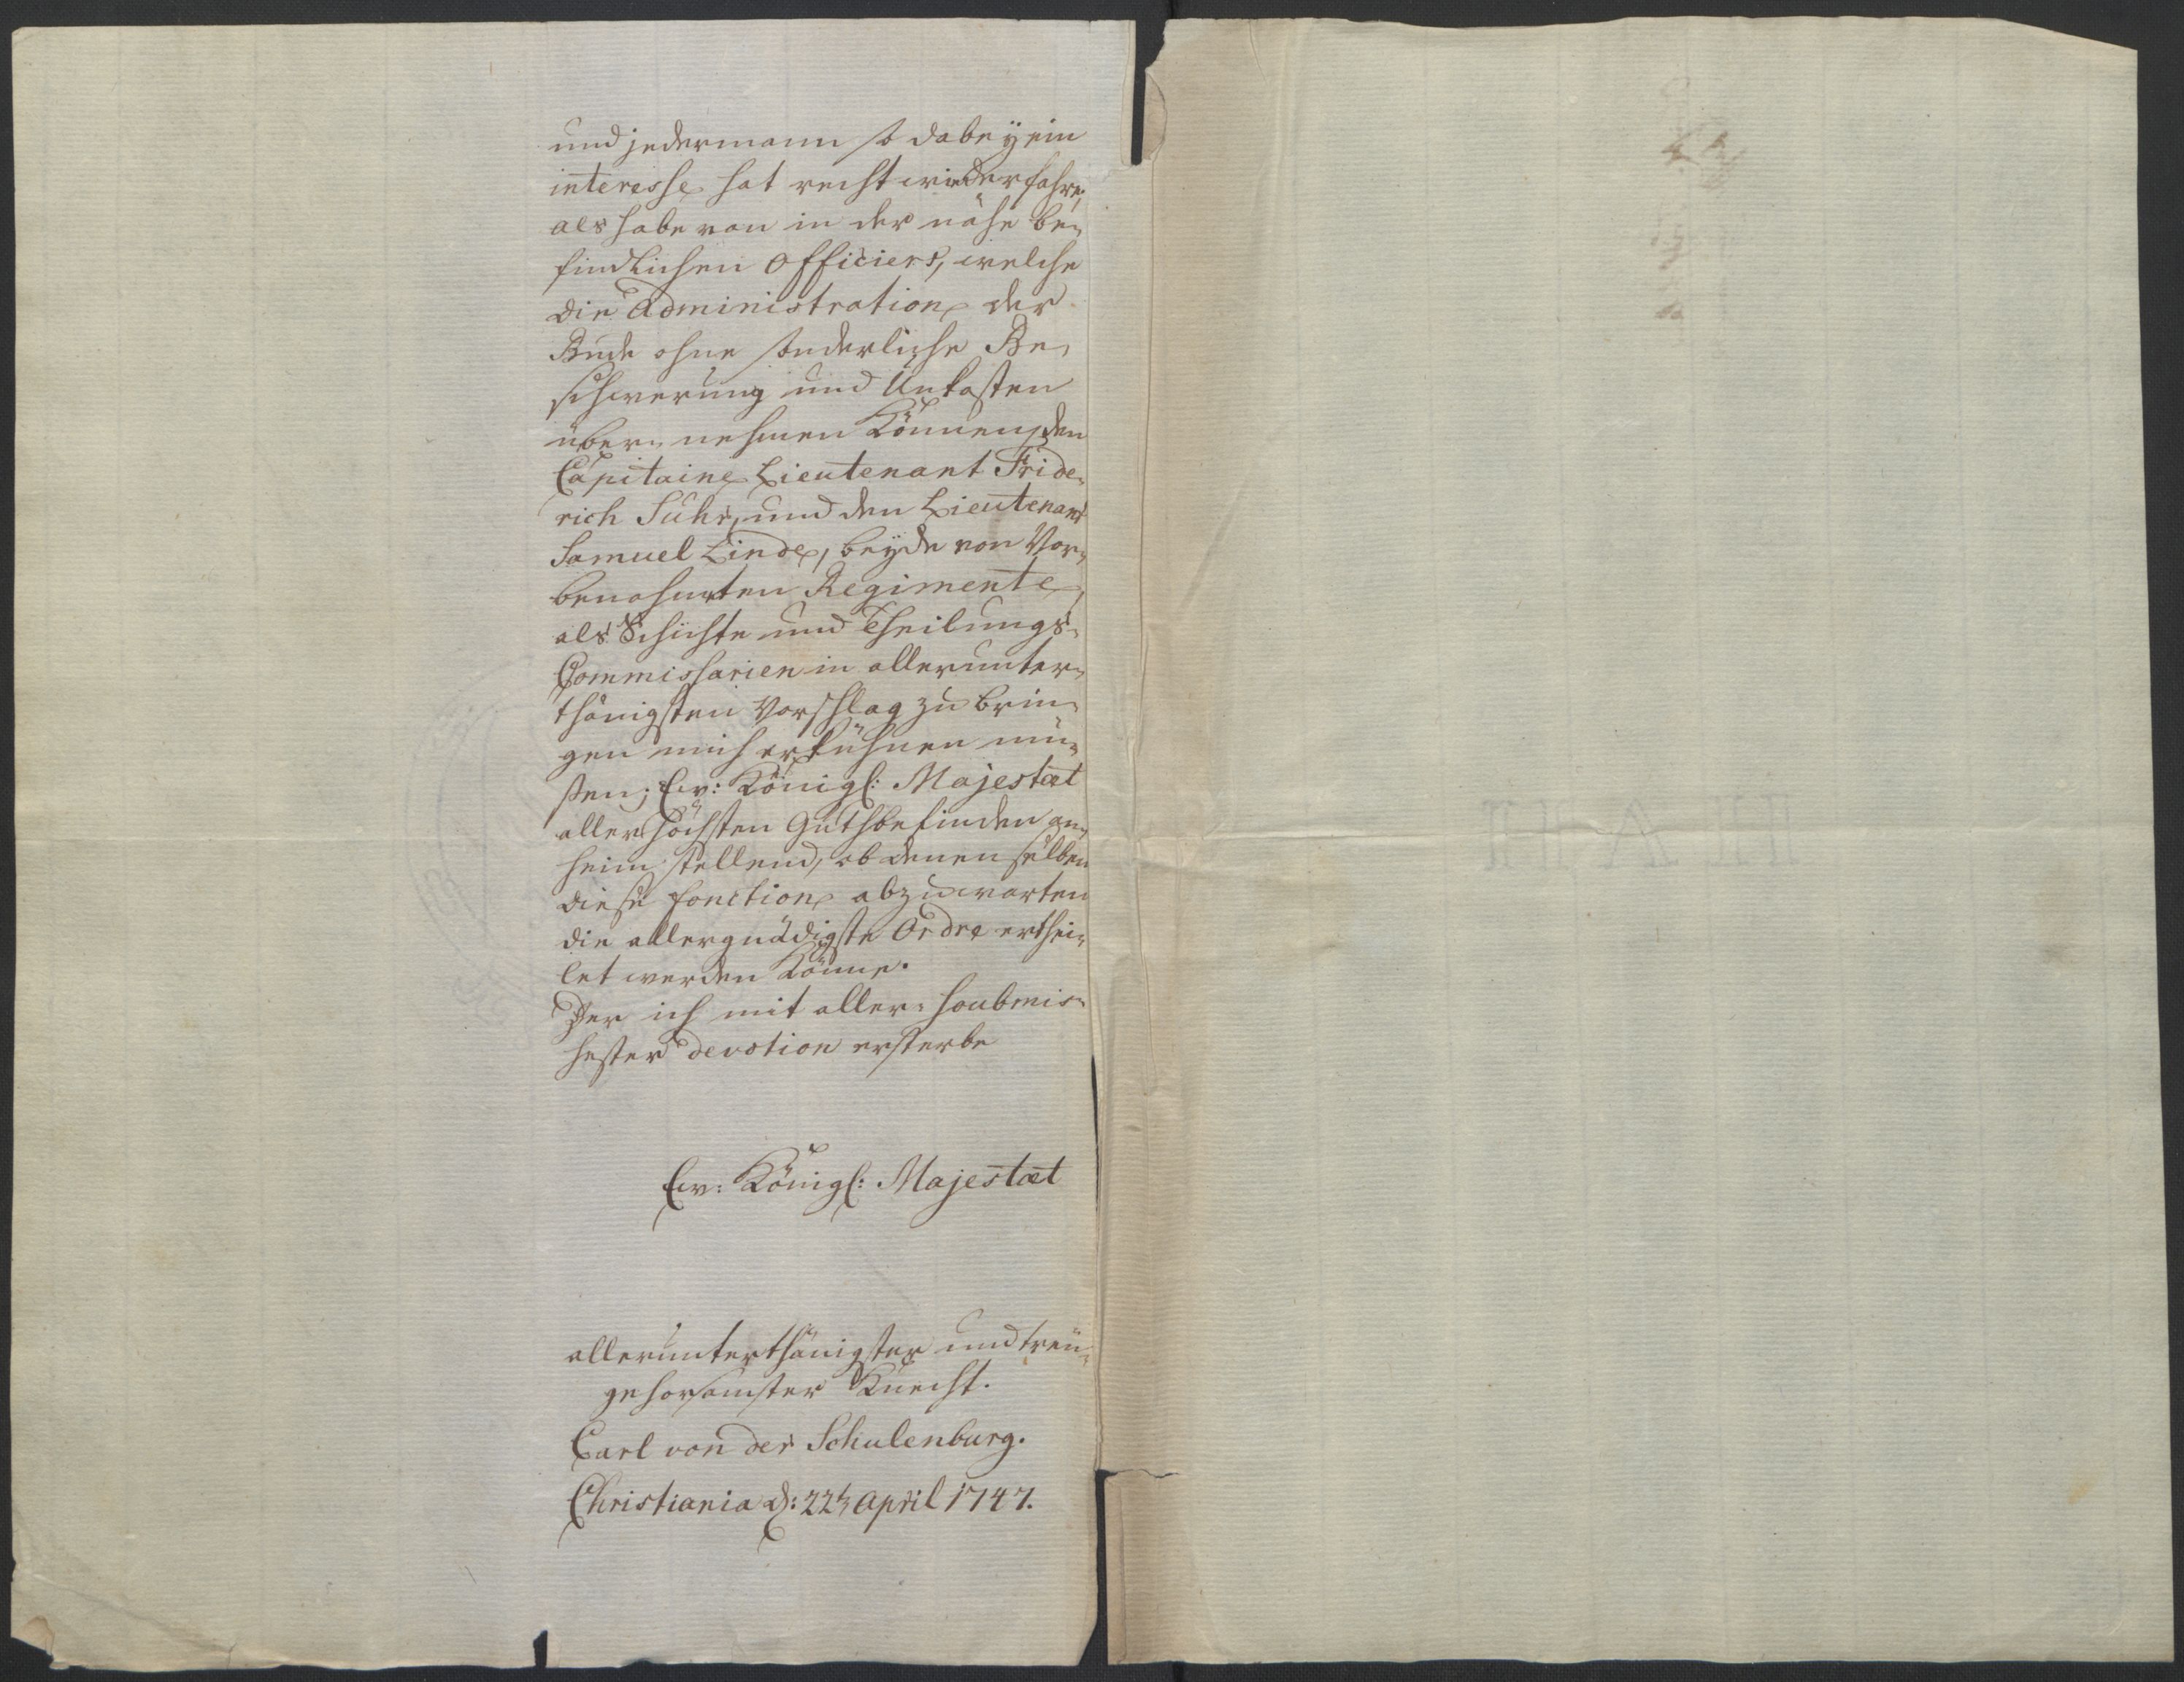 und jedermann so dabeÿ ein
interesse hat recht wiederfahre,
als habe von in der nähe be-
findlichen Officiers, welche
die Administration der
Bude ohne sonderliche Be-
schwerung und Unkosten
über-nehmen Können, den
Capitaine Lieutenant Fride-
rich Suhr, und den Lieutenant
Samuel Linde, beÿde von Vor-
benahmten Regimente,
als Schichte und Theilungs-
Commissarien in allerunter-
thänigsten Vorschlag zu brin-
gen mich erkühnen mü-
ßen; Ew: Königl: Majestæt
allerhöchsten Guthbefinden an-
heim stellend, ob denenselben
diese fonction abzuwarten
die allergnädigste Ordre erthei-
let werden Könne.
Der ich mit aller-soubmis-
sester devotion ersterbe
Ew: Königl: Majestæt
allerunterthänigster und treu-
gehorsamster Knecht.
Carl von der Schulenburg.
Christiania d: 22t April 1747.